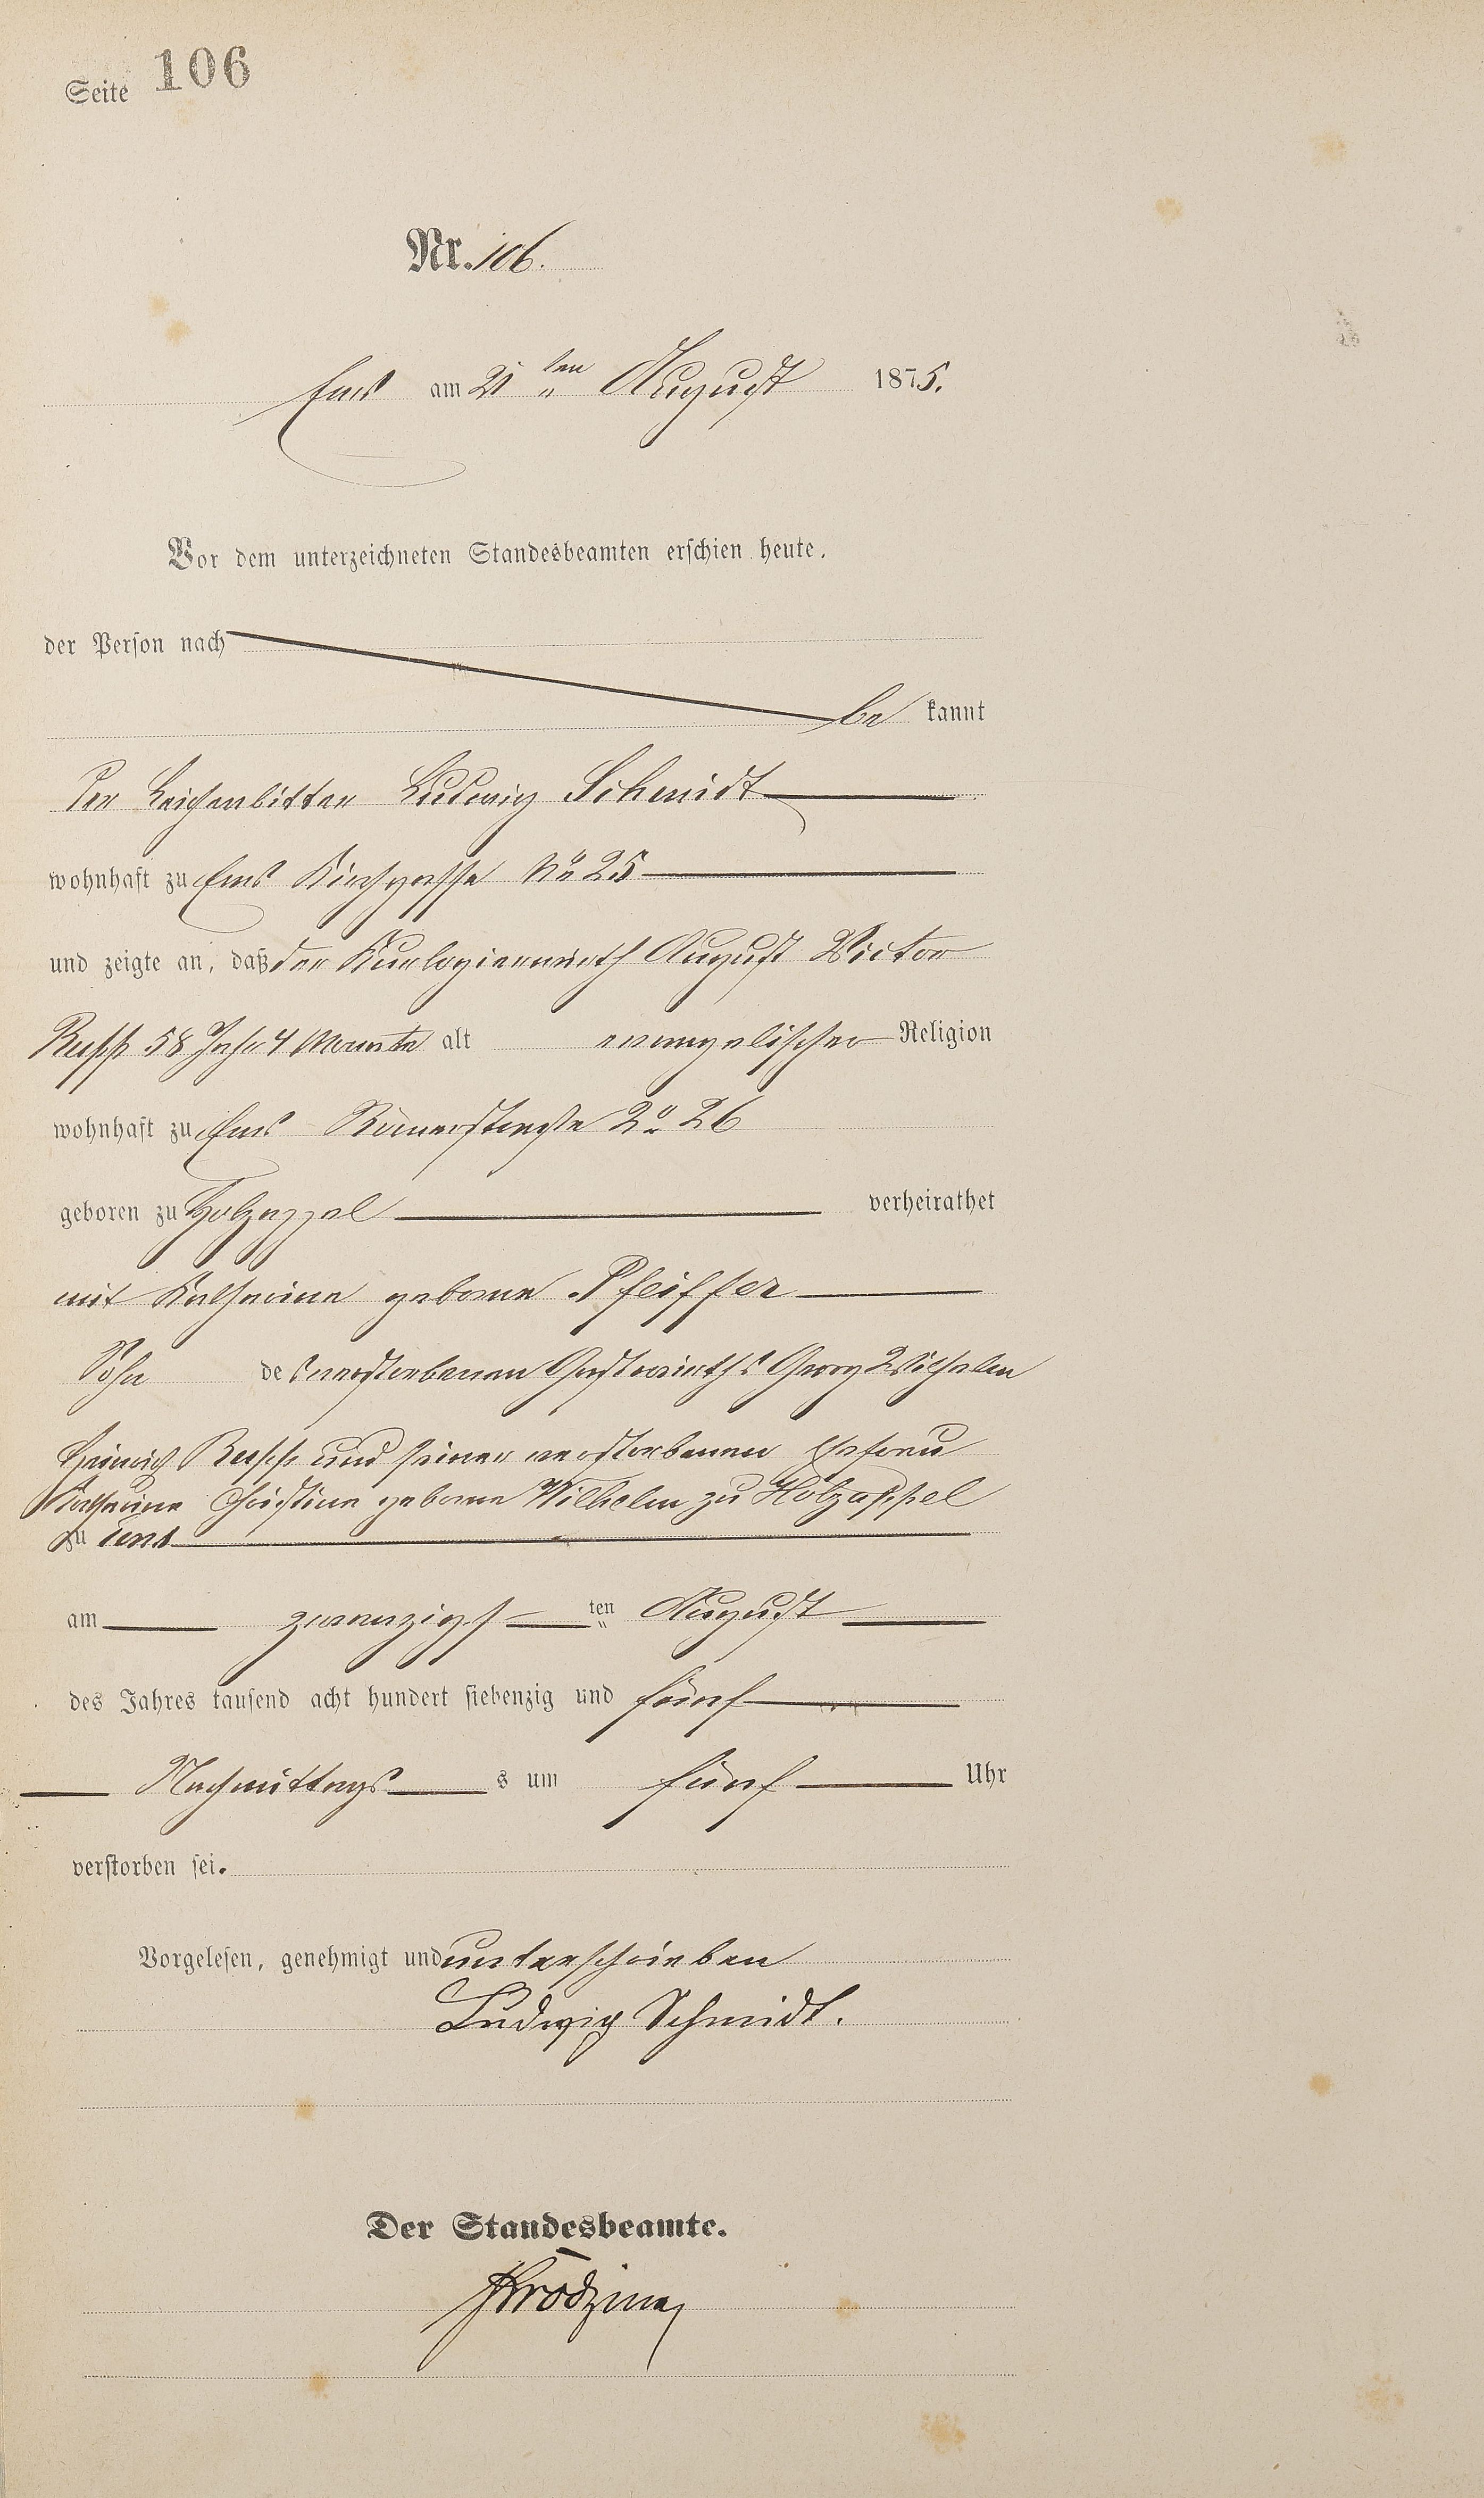 Seite 106
Nr. 106.
Ems am 21 ten August 1875.
Vor dem unterzeichneten Standesbeamten erschien heute,
der Person nach
be kannt
Der Leichenbitter Ludwig Schmidt
wohnhaft zu Ems Kirchgasse No 25
und zeigte an, daß der Kurlogierwirth August Victor
Rupp 58 Jahr 4 Monate alt evangelischer Religion
wohnhaft zu Ems Römerstraße No 26
geboren zu Holzappel verheirathet
mit Katharine geborne Pfeiffer
Sohn des verstorbenen Gastwirth's Georg Wilhelm
Heinrich Rupp und seiner verstorbenen Ehefrau
Katharine Christine geborne Wilhelm zu Holzappel
zu Ems
am zwanzigs ten August
des Jahres tausend acht hundert siebenzig und fünf
Nachmittags s um fünf Uhr
verstorben sei.
Vorgelesen, genehmigt und unterschrieben
Ludwig Schmidt.
Der Standesbeamte.